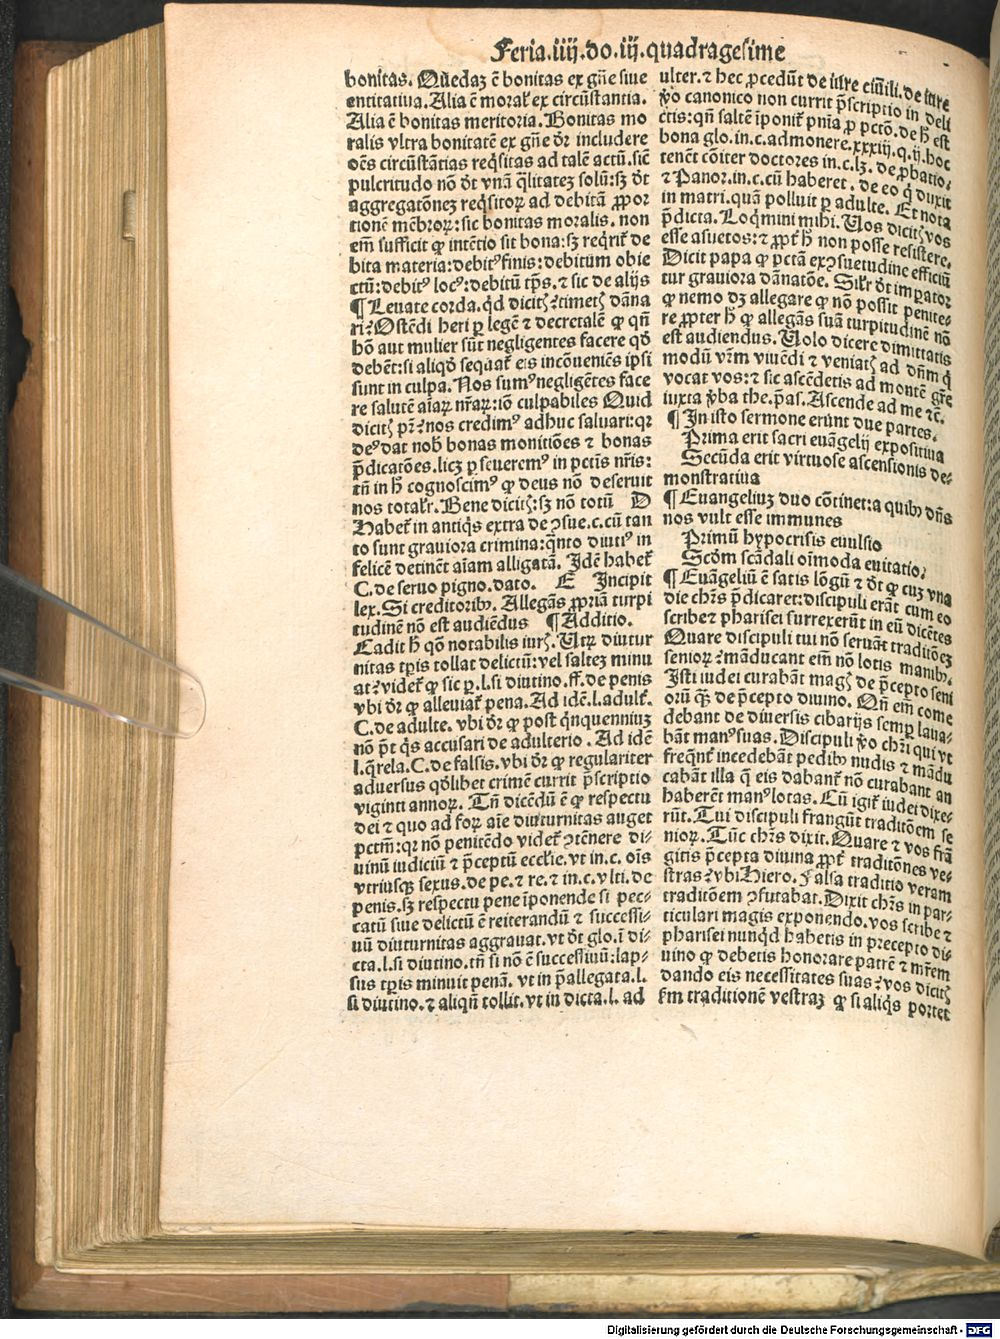 Feria.iiij.do.iij.quadragesime
bonitas. Quedaz ē bonitas ex gn̄e siue
entitatiua. Alia ē moral̓ ex circūstantia.
Alia ē bonitas meritoria. Bonitas mo
ralis vltra bonitatē ex gn̄e dr̄ includere
oēs circūstātias reqsitas ad talē actū. sic̄
pulcritudo nō dr̄ vnā qlitatez solū: sz dr̄
aggregatōnez reqsitoꝝ ad debitā ꝓpor
tionē mēbroꝝ: sic bonitas moralis. non
em̄ sufficit ꝙ intētio sit bona: sz reqrit̄ de
bita materia: debitꝰ finis: debitum obie
ctū: debitꝰ locꝰ: debitū tp̄s. ⁊ sic de alijs
¶ Leuate corda. qd dicitꝭ? timetꝭ dāna
ri? Ostēdi heri ꝑ legē ⁊ decretalē ꝙ qn̄
hō aut mulier sūt negligentes facere qd̄
debēt: si aliqd̄ sequat̄ eis incōueniēs ipsi
sunt in culpa. Nos sumꝰ negligētes face
re salutē aīaꝝ nr̄aꝝ: iō culpabiles Quid
dicitꝭ pr̄? nos credimꝰ adhuc saluari: qꝛ
deꝰ dat nob̄ bonas monitiōes ⁊ bonas
p̄dicatōes. licꝫ ꝑseueremꝰ in pctīs nr̄is:
tn̄ in h̄ cognoscimꝰ ꝙ deus nō deseruit
nos total̓r. Bene dicitꝭ: sz nō totū D
Habet̄ in antiqs extra de ꝯsue. c. cū tan
to sunt grauiora crimina: qnto diutiꝰ in
felicē detinēt aīam alligatā. Idē habet̄
C. de seruo pigno. dato. E Incipit
lex. Si creditoribꝰ. Allegās ꝓpriā turpi
tudinē nō est audiēdus ¶ Additio.
Cadit h̄ qō notabilis iurꝭ. Utꝝ diutur
nitas tp̄is tollat delictū: vel saltez minu
at? videt̄ ꝙ sic ꝑ. l. si diutino. ff. de penis
vbi dr̄ ꝙ alleuiat̄ pena. Ad idē. l. adult̄.
C. de adulte. vbi dr̄ ꝙ post qnquenniuz
nō pt̄ qs accusari de adulterio. Ad idē
l. qrela. C. de falsis. vbi dr̄ ꝙ regulariter
aduersus qdlibet crimē currit p̄scriptio
viginti annoꝝ. Tn̄ dicēdū ē ꝙ respectu
dei ⁊ quo ad foꝝ aīe diuturnitas auget
pctm̄: qꝛ nō penitēdo videt̄ ꝯtēnere di-
uinū iudiciū ⁊ p̄ceptū eccl̓ie. vt in. c. oīs
vtriusqꝫ sexus. de pe. ⁊ re. ⁊ in. c. vlti. de
penis. sz respectu pene īponende si pec-
catū siue delictū ē reiterandū ⁊ successi-
uū diuturnitas aggrauat. vt dt̄ glo. ī di-
cta. l. si diutino. tn̄ si nō ē successiuū: lap-
sus tp̄is minuit penā. vt in p̄allegata. l.
si diutino. ⁊ aliqn̄ tollit. vt in dicta. l. ad
ulter. ⁊ hec ꝓcedūt de iure ciuili. de iure
v̄o canonico non currit p̄scriptio in deli
ctis: qn̄ saltē īponit̄ pn̄ia ꝓ pctō. de h̄ est
bona glo. in. c. admonere. xxxiij. q. ij. hoc
tenēt cōiter doctores in. c. lꝫ. de ꝓbatio.
⁊ Panor. in. c. cū haberet. de eo q duxit
in matri. quā polluit ꝑ adulte. Et nota
p̄dicta. Loqmini mihi. Uos dicitꝭ vos
esse asuetos: ⁊ ꝓpt̄ h̄ non posse resistere.
Dicit papa ꝙ pctā ex ꝯsuetudine efficiū
tur grauiora dānatōe. Sil̓r dt̄ imperator
ꝙ nemo dz allegare ꝙ nō possit penite-
re ꝓpter h̄ ꝙ allegās suā turpitudinē nō
est audiendus. Uolo dicere dimittatis
modū vr̄m viuēdi ⁊ veniatꝭ ad dn̄m q
vocat vos: ⁊ sic ascēdetis ad montē gr̄e
iuxta v̄ba the. p̄as. Ascende ad me ⁊c̄.
¶ In isto sermone erūnt due partes.
Prima erit sacri euāgelij expositiua
Secūda erit virtuose ascensionis de-
monstratiua
¶ Euangeliuz duo cōtinet: a quibꝰ dn̄s
nos vult esse immunes
Primū hypocrisis euulsio
Scd̄m scādali oīmoda euitatio.
¶ Euāgeliū ē satis lōgū ⁊ dt̄ ꝙ cuz vna
die chr̄s p̄dicaret: discipuli erāt cum eo
scribe ⁊ pharisei surrexerūt in eū dicētes
Quare discipuli tui nō seruāt traditōez
senioꝝ? māducant em̄ nō lotis manibꝰ.
Isti iudei curabāt magꝭ de p̄cepto seni
orū qꝫ de p̄cepto diuino. Qn̄ em̄ come
debant de diuersis cibarijs semꝑ laua-
bāt manꝰ suas. Discipuli v̄o chr̄i qui vt
freqnt̄ incedebāt pedibꝰ nudis ⁊ mādu
cabāt illa q̄ eis dabant̄ nō curabant an
haberēt manꝰ lotas. Cū igit̄ iudei dixe-
rūt. Tui discipuli frangūt traditōem se
nioꝝ. Tūc chr̄s dixit. Quare ⁊ vos frā
gitis p̄cepta diuina ꝓpt̄ traditōnes ve-
stras? vbi Hiero. Falsa traditio veram
traditōem ꝯfutabat. Dixit chr̄s in par-
ticulari magis exponendo. vos scribe ⁊
pharisei nunqd habetis in precepto di-
uino ꝙ debetis honorare patrē ⁊ mr̄em
dando eis necessitates suas? vos dicitꝭ
km̄ traditionē vestraz ꝙ si aliqs portet
Digitalisierung gefördert durch die Deutsche Forschungsgemeinschaft - DFG